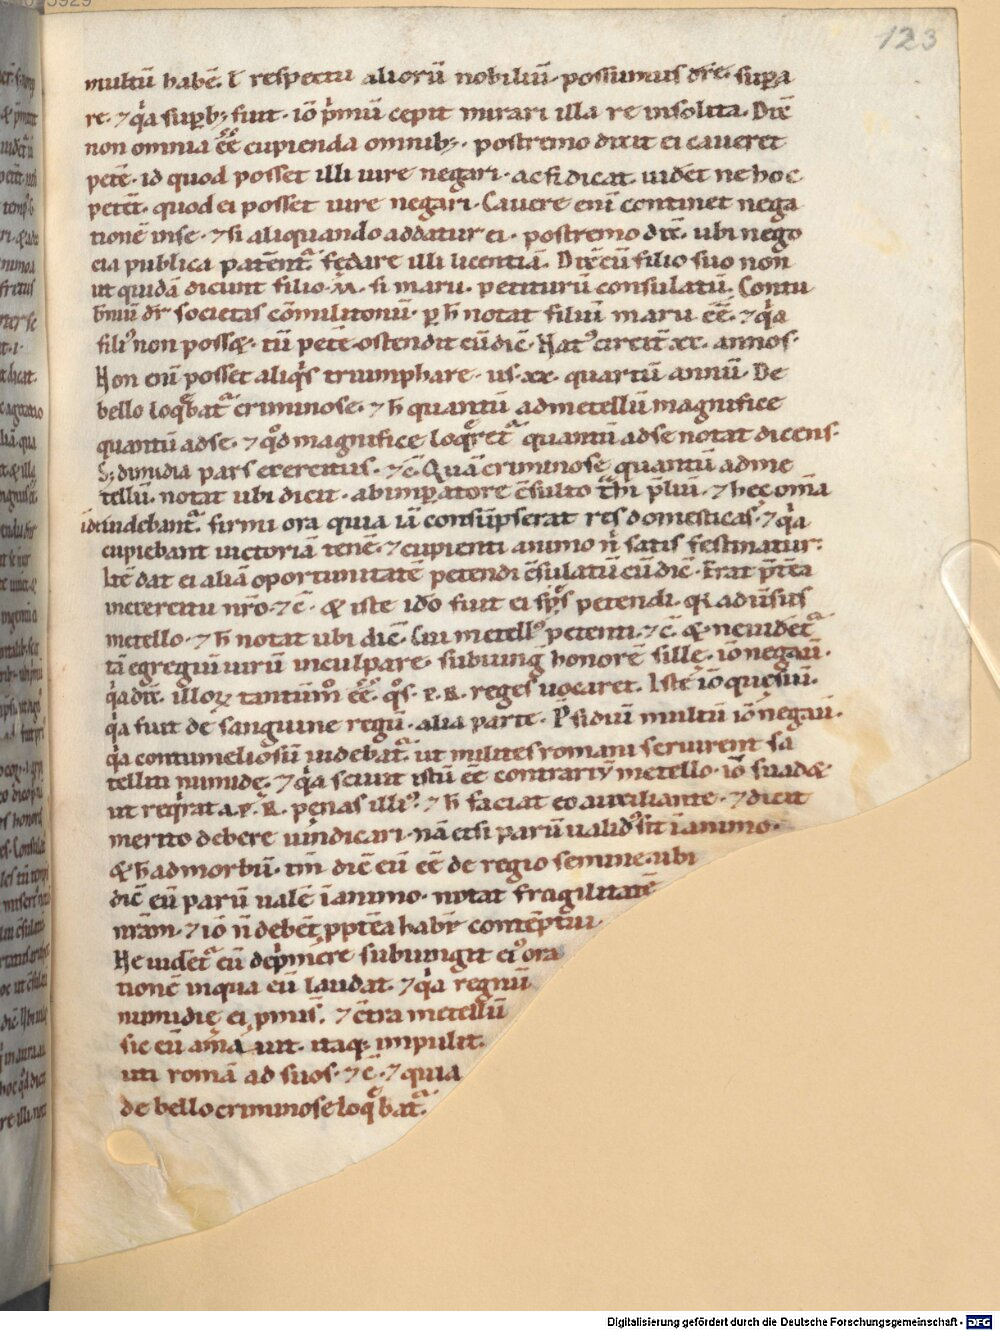 123
multū habē. ł respectu alioꝝ nobiliū. possumus dr̄e. supꝑa
re. ⁊ qͥa suꝑbꝰ fuit. iō pͥmū cepit mirari illa re insolita. Dic̄
non omnia ee̅ cupienda omnibꝫ. postremo dixit ei caueret
petē. id quod posset illi iure negari. ac si dicat. uidēt ne hoc
petēt. quod ei posset iure negari. Cauere eni̅ continet nega
tionē in se. ⁊ si aliquando addatur ei. postremo dic̄. ubi nego
cia publica patēnt̄. fedare illi licentiā. Dic̄ cū filio suo non
ut quidā dicunt filio. M̄. si marii. petiturū consulatū. Contu
bniū dr̄ societas cōmilitonū. ꝑ h̄ notat filiū marii ee̅. ⁊ qͥa
filiꝰ non posset. tū petē. ostendit cū dic̄. Natꝰ circit̄ xx. annos.
Non eni̅ posset aliqͥs triumphare. us. xx. quartū annū. De
bello loqͤbat̄ criminose. ⁊ h̄ quantū ad metellū magnifice
quantū ad se. ⁊ qͦd magnifice loqͤret̄ quantū ad se notat dicens.
Sꝫ dimidia pars exercitus. ⁊c̄. Quā criminose quantū ad me
tellū. notat ubi dicit. ab imꝑatore c̄sulto t̄hi p̄liū. ⁊ hec om̄a
id uidebant̄. firmiora quia iā consūpserat res domesticas. ⁊ qͥa
cupiebant uictoriā tenē. ⁊ cupienti animo n̄ satis festinatur.
Itē dat ei aliā oportunitatē petendi c̄sulatū cū dic̄. Erat p̄tea
in exercitu nr̄o. ⁊c̄. & iste idō fuit ei sp̄s petendi. qͥ aduersus
metello. ⁊ h̄ notat ubi dic̄. Cui metellꝰ petenti. ⁊c̄. & ne uidet̄
tā egregiū uirū inculpare. subiungͭ honorē sille. iō negau̅.
qͥa dic̄. illoꝝ tantūm̊ ee̅. qͦs. P. R. reges uocaret. Iste iō quesiui̅.
qͥa fuit de sanguine regū. alia parte. P̄sidiū multū iō negau̅.
qͥa contumeliosū uidebat̄. ut milites romani seruirent sa
telliti numidę. ⁊ qͥa sciuit istū ee̅ contrariū metello. iō suadet
ut reqͥrat a. P. R. penas illiꝰ. ⁊ h̄ faciat eo auxiliante. ⁊ dicit
merito debere uindicari. nā etsi parū ualidꝰ sit i̅ animo.
& h̄ ad morbū. tm̄ dic̄ eū ee̅ de regio semine. ubi
dic̄ eū parū ualē i̅ animo. notat fragilitatē
nr̄am. ⁊ iō n̄ debēt ꝓpt̄ea haberi contēptui.
Ne uidet̄ eū depͥmere subiungit eiꝰ ora
tionē in qua eū laudat. ⁊ qͥa regnū
numidię ei ꝓmis̄. ⁊ c̄tra metellū
sic eū amauit. itaqꝫ impulit.
uti romā ad suos. ⁊c̄. ⁊ quia
de bello criminose loqͤbat̄.
Digitalisierung gefördert durch die Deutsche Forschungsgemeinschaft - DFG